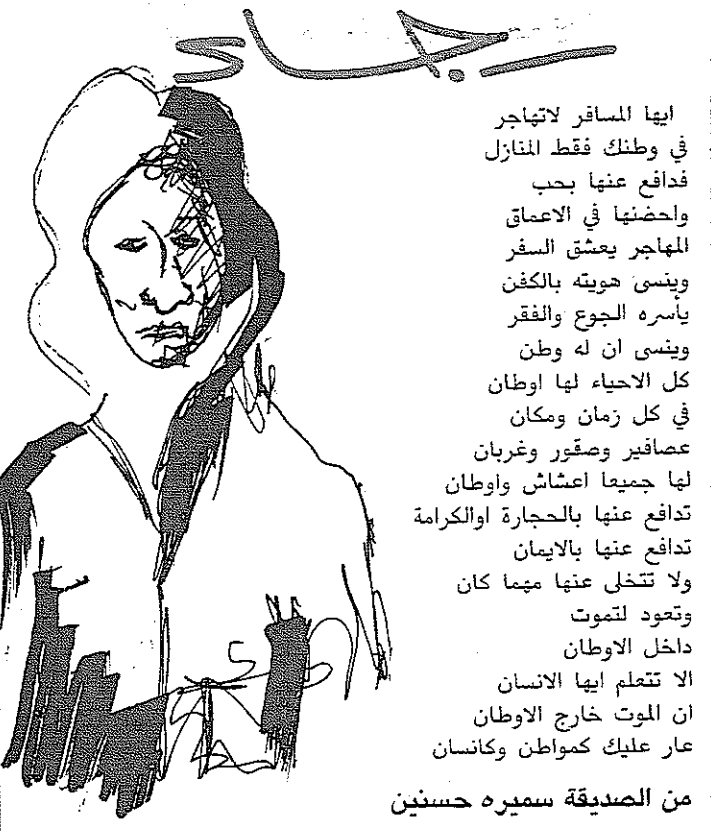 رجاء
ايها المسافر لاتهاجر
في وطنك فقط المنازل
فدافع عنها بحب
واحضنها في الاعماق
المهاجر يعشق السفر
وينسى هويته بالكفن
يأسره الجوع والفقر
وينسى ان له وطن
كل الاحياء لها اوطان
في كل زمان ومكان
عصافير وصقور وغربان
لها جميعا اعشاش واوطان
تدافع عنها بالحجارة اوالكرامة
تدافع عنها بالايمان
ولا تتخلى عنها مهما كان
وتعود لتموت
داخل الاوطان
الا تتعلم ايها الانسان
ان الموت خارج الاوطان
عار عليك كمواطن وكانسان
من الصديقة سميره حسنين